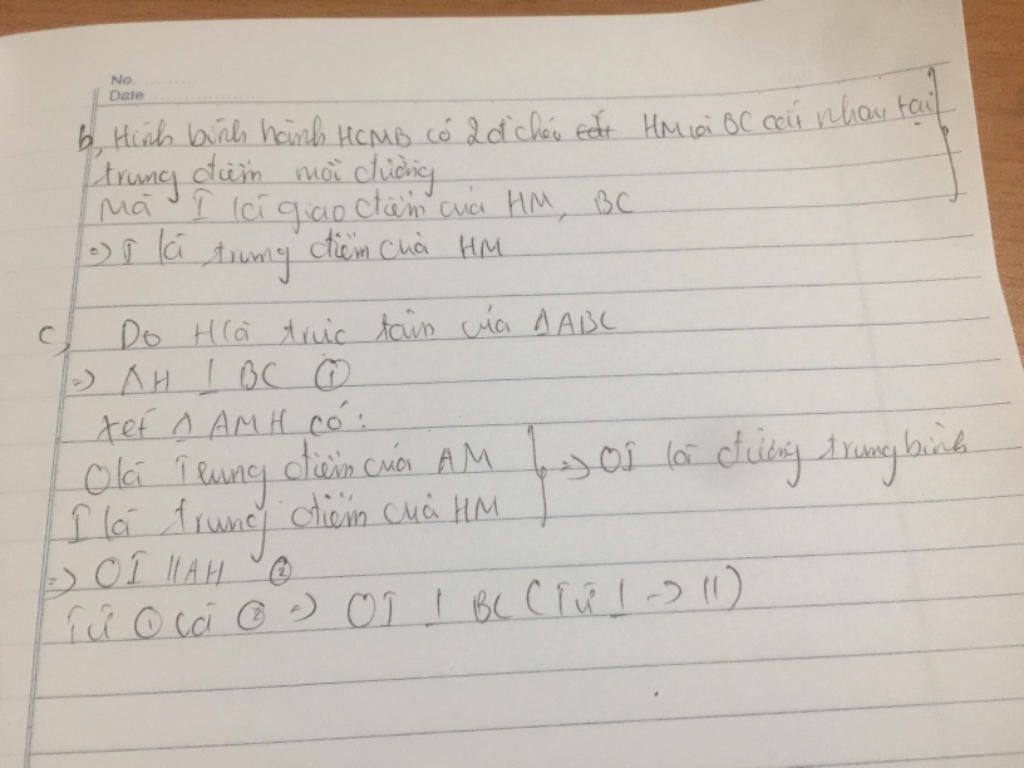 No.
Date
b, Hình bình hành HCMB có 2 đ' chéo HM và BC cắt nhau tại
trung điểm mỗi đường
Mà I là giao điểm của HM, BC
=> I là trung điểm của HM
c, Do H là trực tâm của ΔABC
=> AH ⊥ BC ①
xét Δ AMH có:
O là Trung điểm của AM => OI là đường trung bình
I là trung điểm của HM
=> OI // AH ②
Từ ① và ② => OI ⊥ BC (Từ ⊥ -> //)